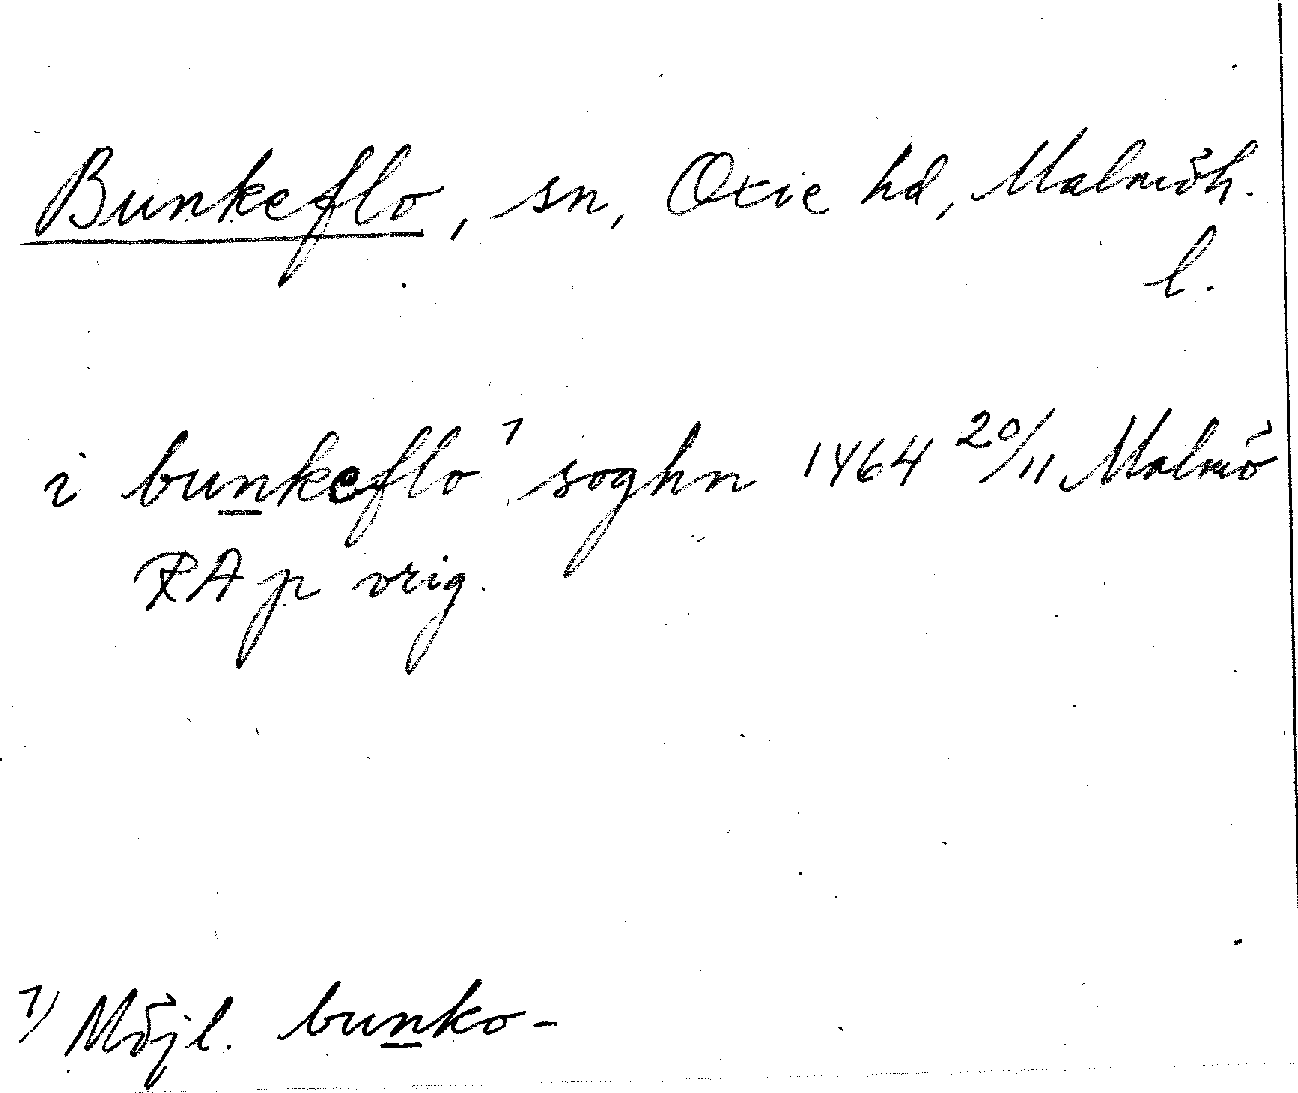 Bunkeflo, sn, Oxie hd, Malmöh.
l.
i bunkeflo¹ soghn 1464 20/11 Malmö
RA p orig.
1) Möjl. bunko-